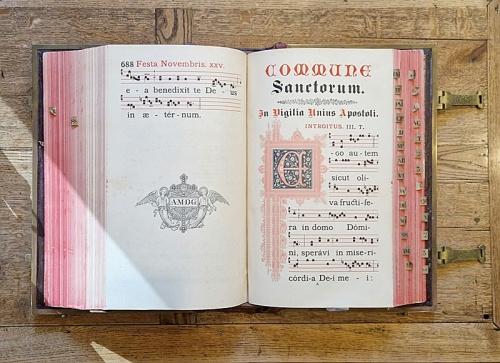 688 Festa Novembris. XXV.
e - a benedixit te De - us
in æ - tér - num.
AMDG
COMMUNE
Sanctorum.
In Vigilia Unius Apostoli.
INTROITUS. III. T.
E - go au - tem
sicut oli-
va fructi-fe-
ra in domo Dómi-
ni, sperávi in mise-ri-
córdi-a De-i me - i: